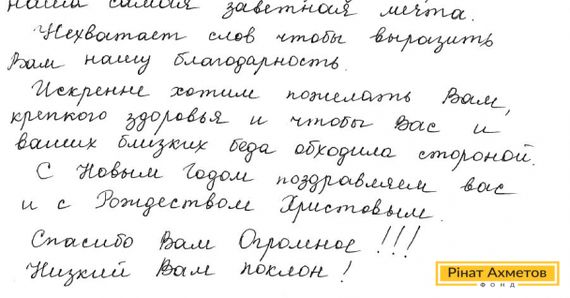 наша самая заветная мечта.
Нехватает слов чтобы выразить
Вам нашу благодарность.
Искренне хотим пожелать Вам,
крепкого здоровья и чтобы Вас и
ваших близких беда обходила стороной.
С Новым Годом поздравляем вас
и с Рождеством Христовым.
Спасибо Вам Огромное!!!
Низкий Вам поклон!
Рінат Ахметов
ФОНД